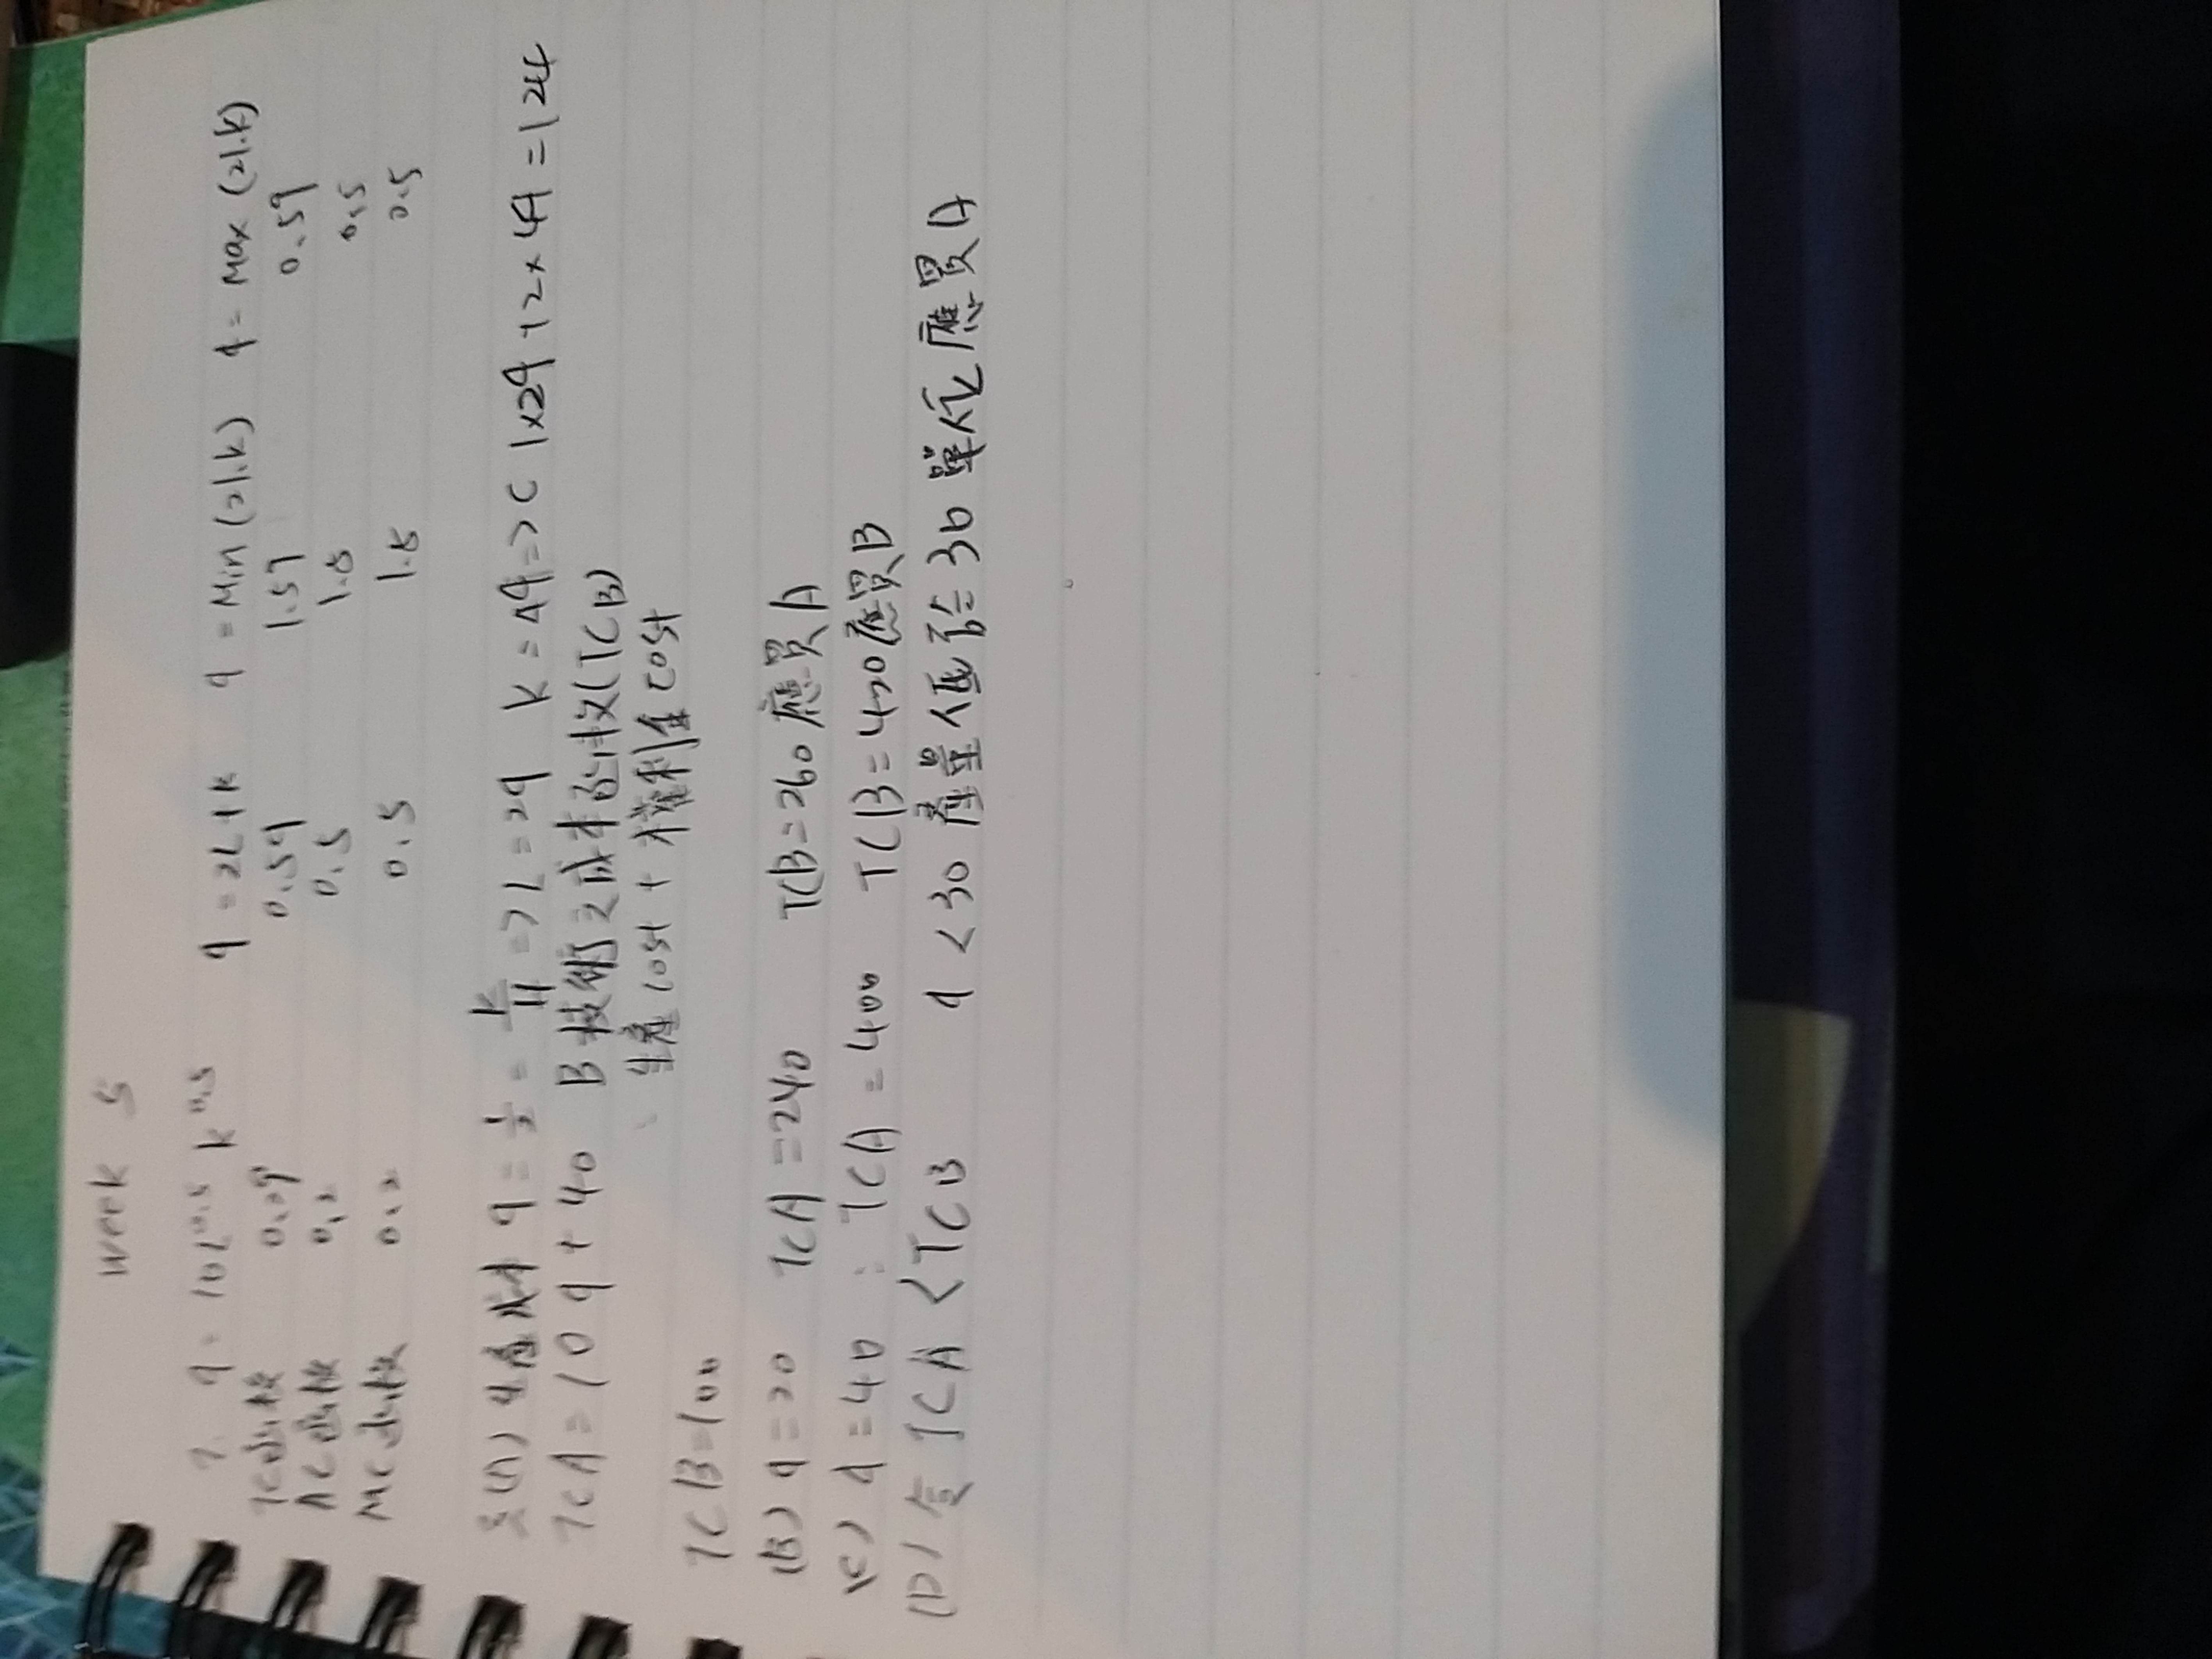 week 5
1. q = 10L^0.5 K^0.5 q = 2L+K q = Min (2L.K) q = Max (2L.K)
TC函數 0.2q 0.5q 1.5q 0.5q
AC函數 0.2 0.5 1.5 0.5
MC函數 0.2 0.5 1.5 0.5
(A) 生產成本 q = 1/2 = K/4 => L = 2q K = 4q => C 1×2q + 2×4q = 124
TCA = 10q + 40 B技術之成本函數(TCB)
: 生產cost + 權利金cost
TCB=100
(B) q = 20 TCA = 240 TCB = 260 應買A
(C) q = 40 : TCA = 400 TCB = 420 應買B
(D) 令 TCA < TCB q < 30 產量低於30單位應買A